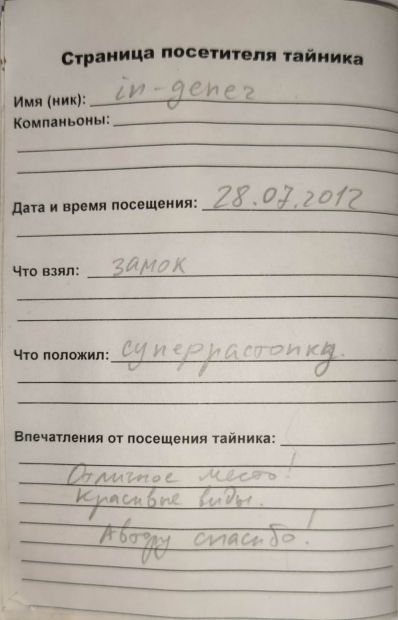 Страница посетителя тайника
Имя (ник): in-gener
Компаньоны:
Дата и время посещения: 28.07.2012
Что взял: замок
Что положил: суперрастопку.
Впечатления от посещения тайника:
Отличное место!
Красивые виды.
Автору спасибо!